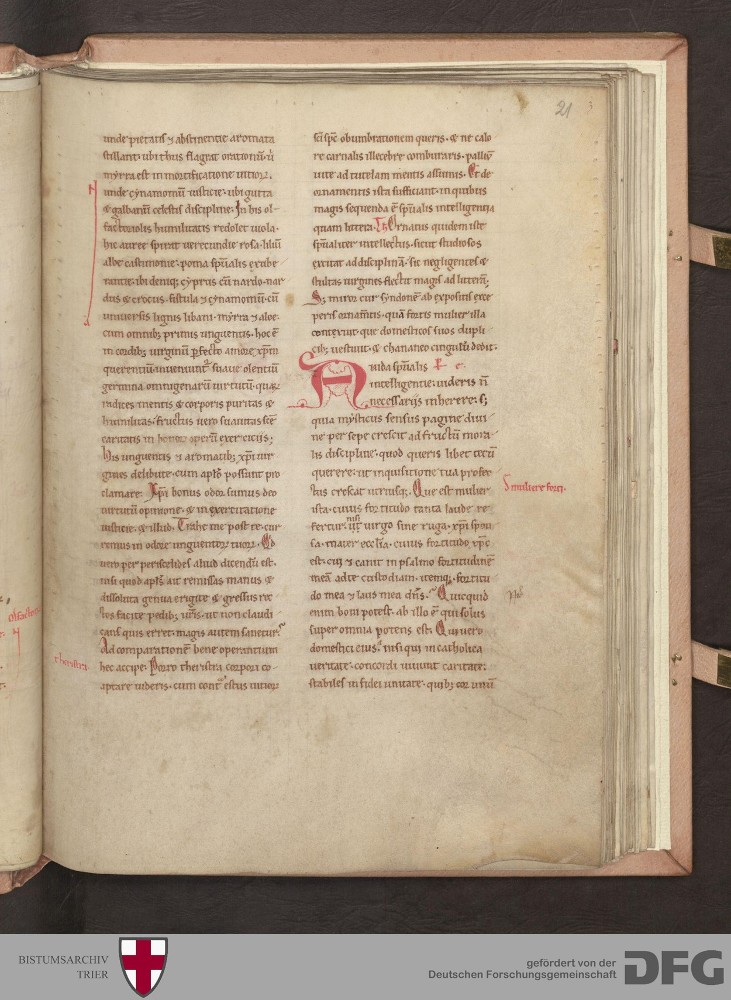 21
unde pietatis ⁊ abstinentie aromata
stillant· ubi thus flagrat orationū· ů
myrra est in mortificatione uitiorꝝ·
unde cynamomū iusticie· ubi gutta
⁊ galbanū celestis discipline· In his ol-
factoriolis humilitatis redolet uiola·
hic auree spirat uerecundie rosa· liliū
albe castimonie· poma spūalis exube
rantie· ibi deniqꝫ cyprus cū nardo· nar
dus ⁊ crocus· fistula ⁊ cynamomū· cū
uniuersis lignis libani· myrra ⁊ aloe·
cum omībꝫ primis unguentis· hoc ē
in cordibꝫ uirginū ꝑfecto amore xp̄m
querentiū inueniunt᷑ suaue olentiū
germina omnigenarū uirtutū· quaꝝ
radices mentis ⁊ corporis puritas ⁊
humilitas· fructus uero suauitas scē
caritatis in honorꝫ operū exerciciis·
His unguentis ⁊ aromatibꝫ xp̄i uir
gines delibute· cum aplō possunt pro
clamare· Xp̄i bonus odor sumus deo
uirtutū opinione· ⁊ in exercitatione
iusticie· ⁊ illud· Trahe me post te· cur
remus in odore unguentoꝝ tuoꝝ· Qd̄
uero per periscelides aliud dicendū est·
nisi quod apl̄s ait remissas manus ⁊
dissoluta genua erigite ⁊ gressus rec
tos facite pedibꝫ ur̄is· ut non claudi
cans quis erret· magis autem sanetur·
Ad comparationē bene operantium
hec accipe· Porro theristra corpori co-
aptare uideris· cum cont estus uitioꝝ
sc̄i spc̄ obumbrationem queris· ⁊ ne calo
re carnalis illecebre comburaris· palliū
uite ad tutelam mentis assumis· Et de
ornamentis ista sufficiant· in quibus
magis sequenda ē spūalis intelligentia
quam littera· Th̄ Ornatus quidem iste
spūaliter intellectus· sicut studiosos
excitat ad disciplinā· sic negligentes ⁊
stultas uirgines flectit magis ad litterā·
Sꝫ miror cur syndonē ab expositis exce
peris ornamtis· quā fortis mulier illa
contexuit· que domesticos suos dupli
cibꝫ uestiuit· ⁊ chananeo cingulū dedit·
Nuda spūalis P· e·
intelligentie· uideris n̄
necessariis inherere· sꝫ
quia mysticus sensus pagine diui
ne per sepe crescit ad fructū mora-
lis discipline· quod queris libet cecū
querere· ut inquisitione tua profec
tus crescat utriusqꝫ· Que est mulier
ista· cuius fortitudo tanta laude re
fertur· nisi ut virgo sine ruga· xp̄i spon
sa· mater eccl̄ia· cuius fortitudo xp̄c
est· cui ⁊ canit in psalmo fortitudinē
meā ad te custodiam· itemqꝫ· fortitu
do mea ⁊ laus mea dn̄s· Quicquid
enim boni potest· ab illo ē qui solus
super omnia potens est· Qui uero
domestici eius· nisi qui in catholica
ueritate· concordi uiuunt caritate·
stabiles in fidei unitate· quibꝫ cor unū
theristra·
De muliere forti·
BISTUMSARCHIV
TRIER
gefördert von der
Deutschen Forschungsgemeinschaft
DFG